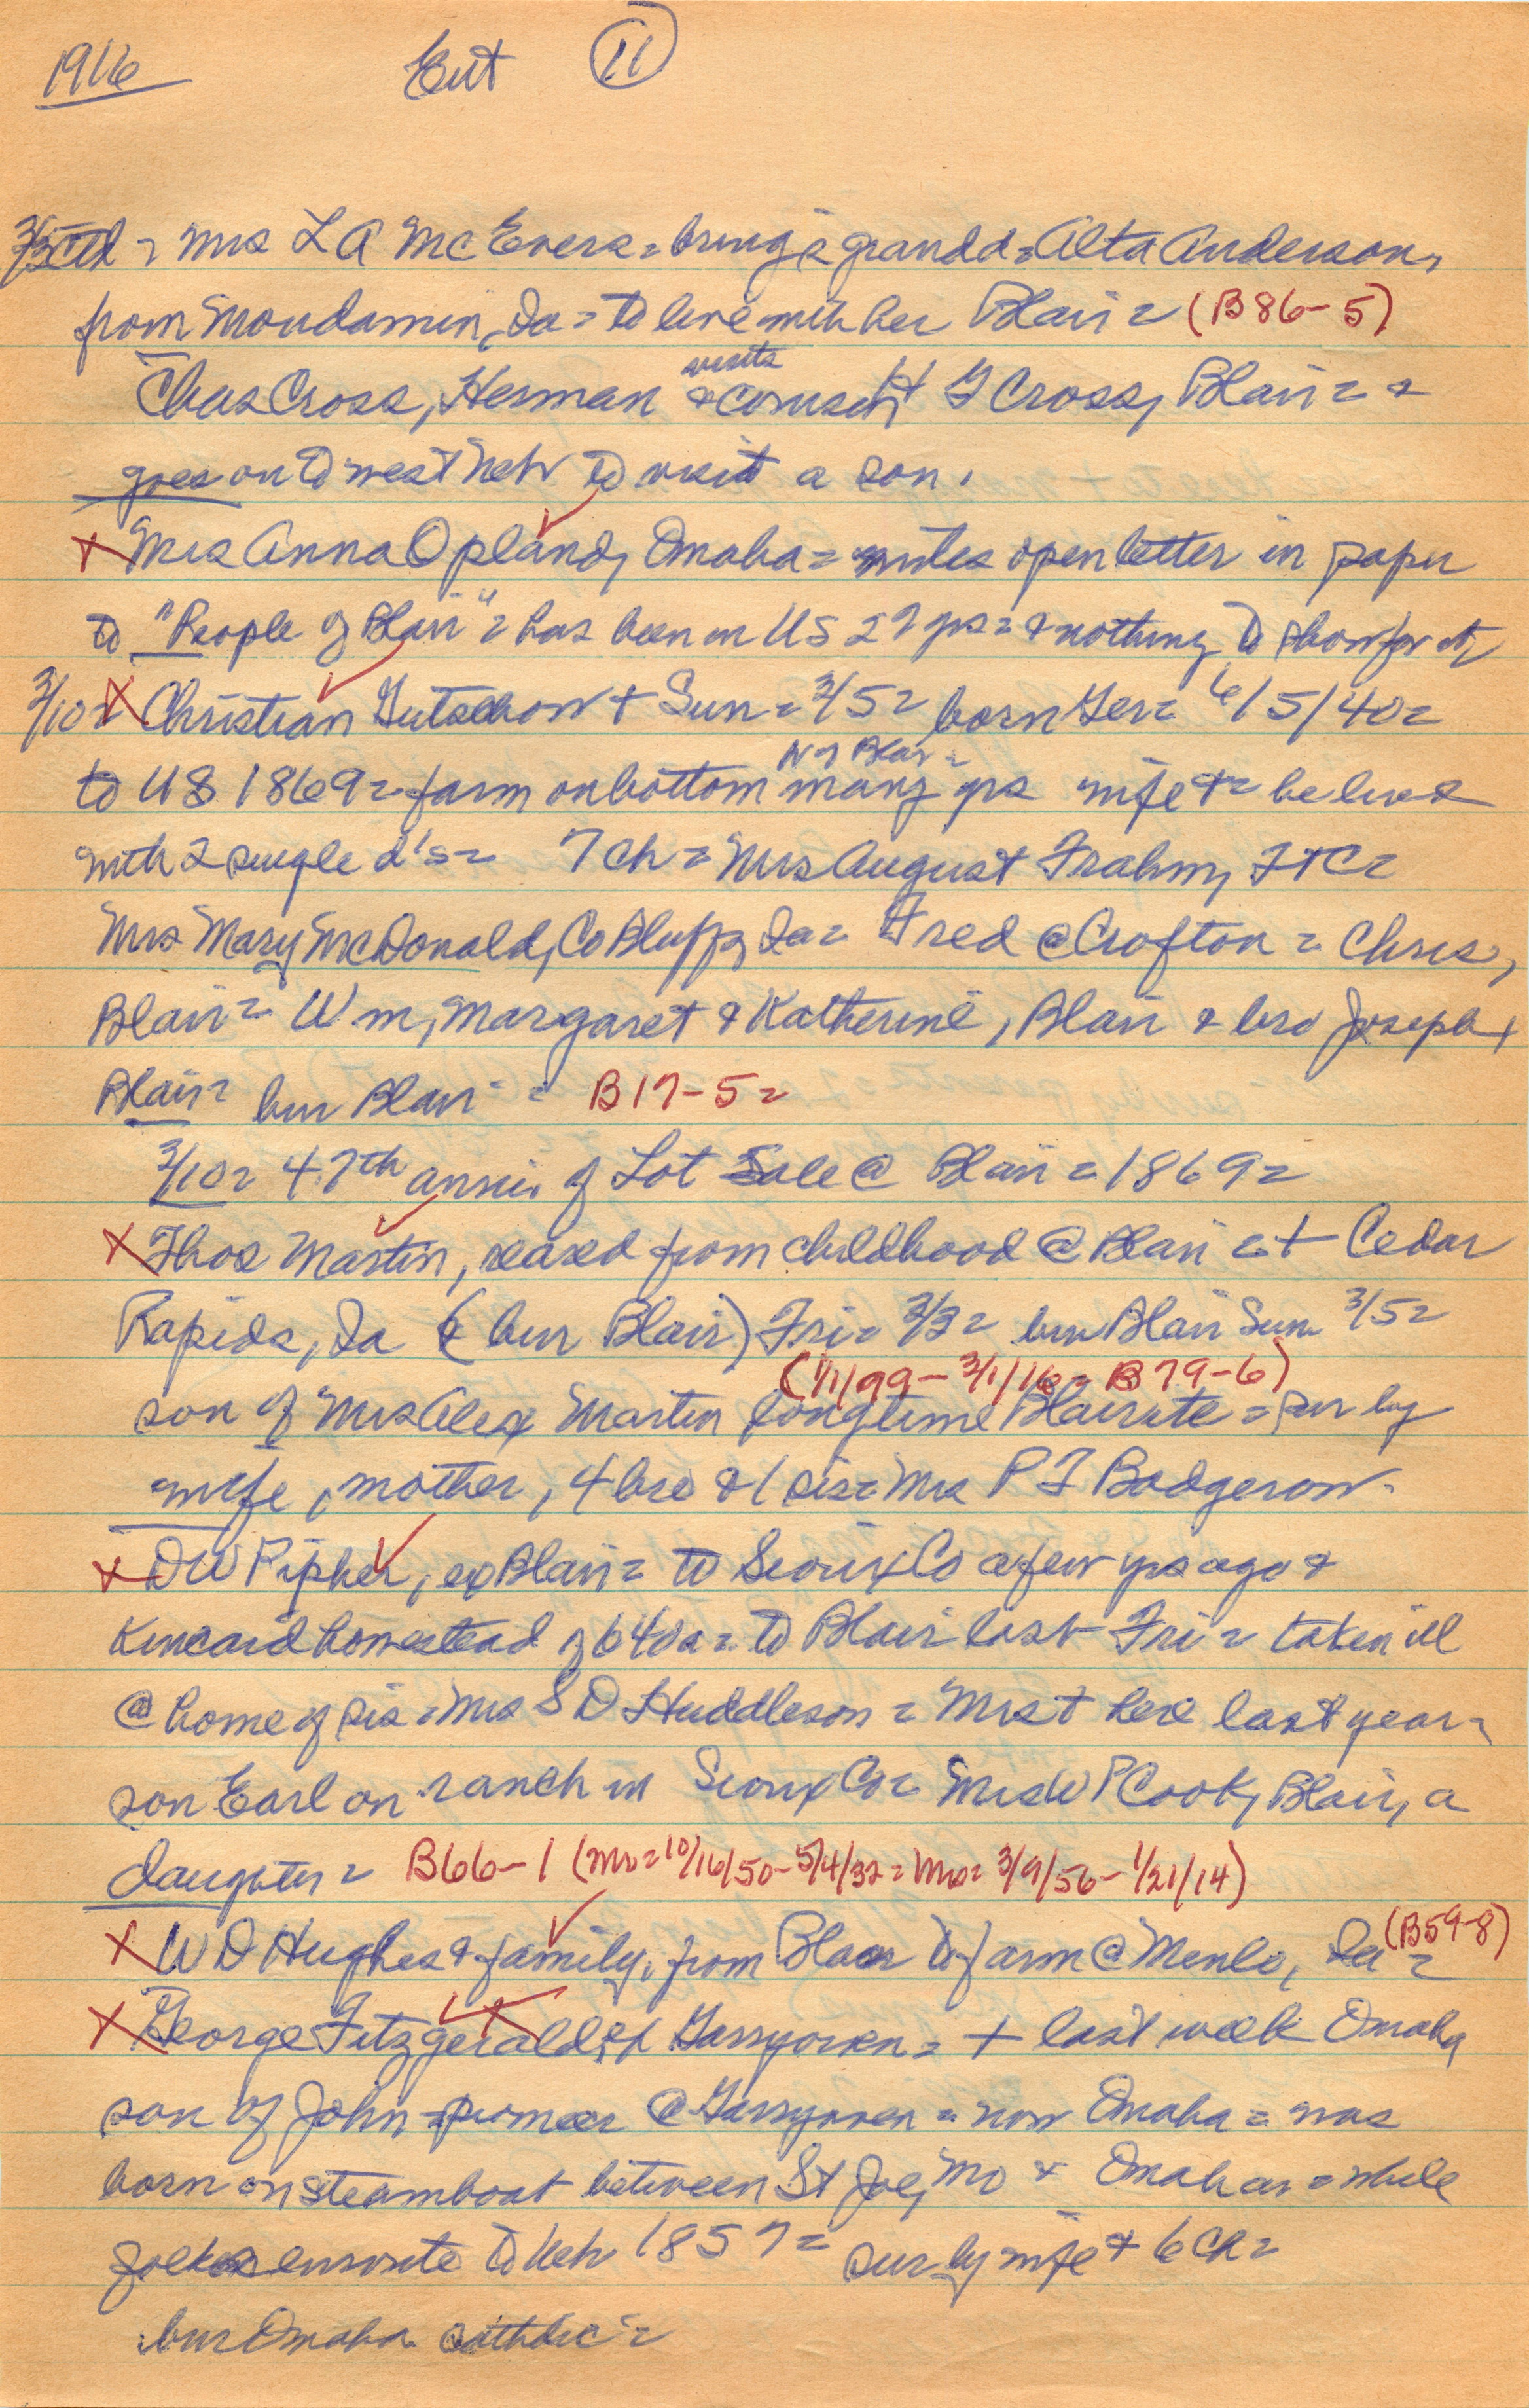 1916 Ent 11
Mrs L A McEvers = brings grandd = Alta Anderson,
from Mondamin, Ia = to live with her Blair = (B86-5)
visits
Chas Cross, Herman & cousin H G Cross, Blair = &
goes on to west Neb to visit a son.
X Mrs Anna Opland, Omaha = writes open letter in paper
to "People of Blair" = has been in US 27 yrs = & nothing to show for it
3/10 = X Christian Gutschow + Sun = 3/5 = born Ger = 6/5/40 =
N of Blair =
to US 1869 = farm on bottom many yrs wife + = he lived
with 2 single d's = 7 ch = Mrs August Frahm, FtC =
Mrs Mary McDonald, Co Bluffs, Ia = Fred @ Crofton = Chris,
Blair = Wm, Margaret & Katherine, Blair & bro Joseph,
Blair = bur Blair = B17-5 =
3/10 = 47th anniv. of Lot Sale @ Blair = 1869 =
X Thos Martin, reared from childhood @ Blair = + Cedar
Rapids, Ia (bur Blair) Fri = 3/3 = bur Blair Sun 3/5 =
(1/1/99 - 3/1/16 = B79-6)
son of Mrs Alex Martin longtime Blairite = sur by
wife, mother, 4 bro & 1 sis = Mrs P F Badgerow.
X D W Pipher, ex Blair = to Sioux Co a few yrs ago &
Kincaid homestead of 640a = to Blair last Fri = taken ill
@ home of sis = Mrs S D Huddleson = Mrs + here last year =
son Earl on ranch in Sioux Co = Mrs W P Cook, Blair, a
daughter = B66-1 (Mr = 10/16/50 - 5/4/32 = Mrs = 3/9/56 - 1/21/14)
X W D Hughes & family, from Blair to farm @ Menlo, Ia = (B59-8)
X George Fitzgerald, ex Garryowen = + last week Omaha
son of John = pioneer @ Garryowen = now Omaha = was
born on steamboat between St Joe, Mo & Omaha = while
folks enroute to Neb 1857 = sur by wife & 6 ch =
bur Omaha catholic =